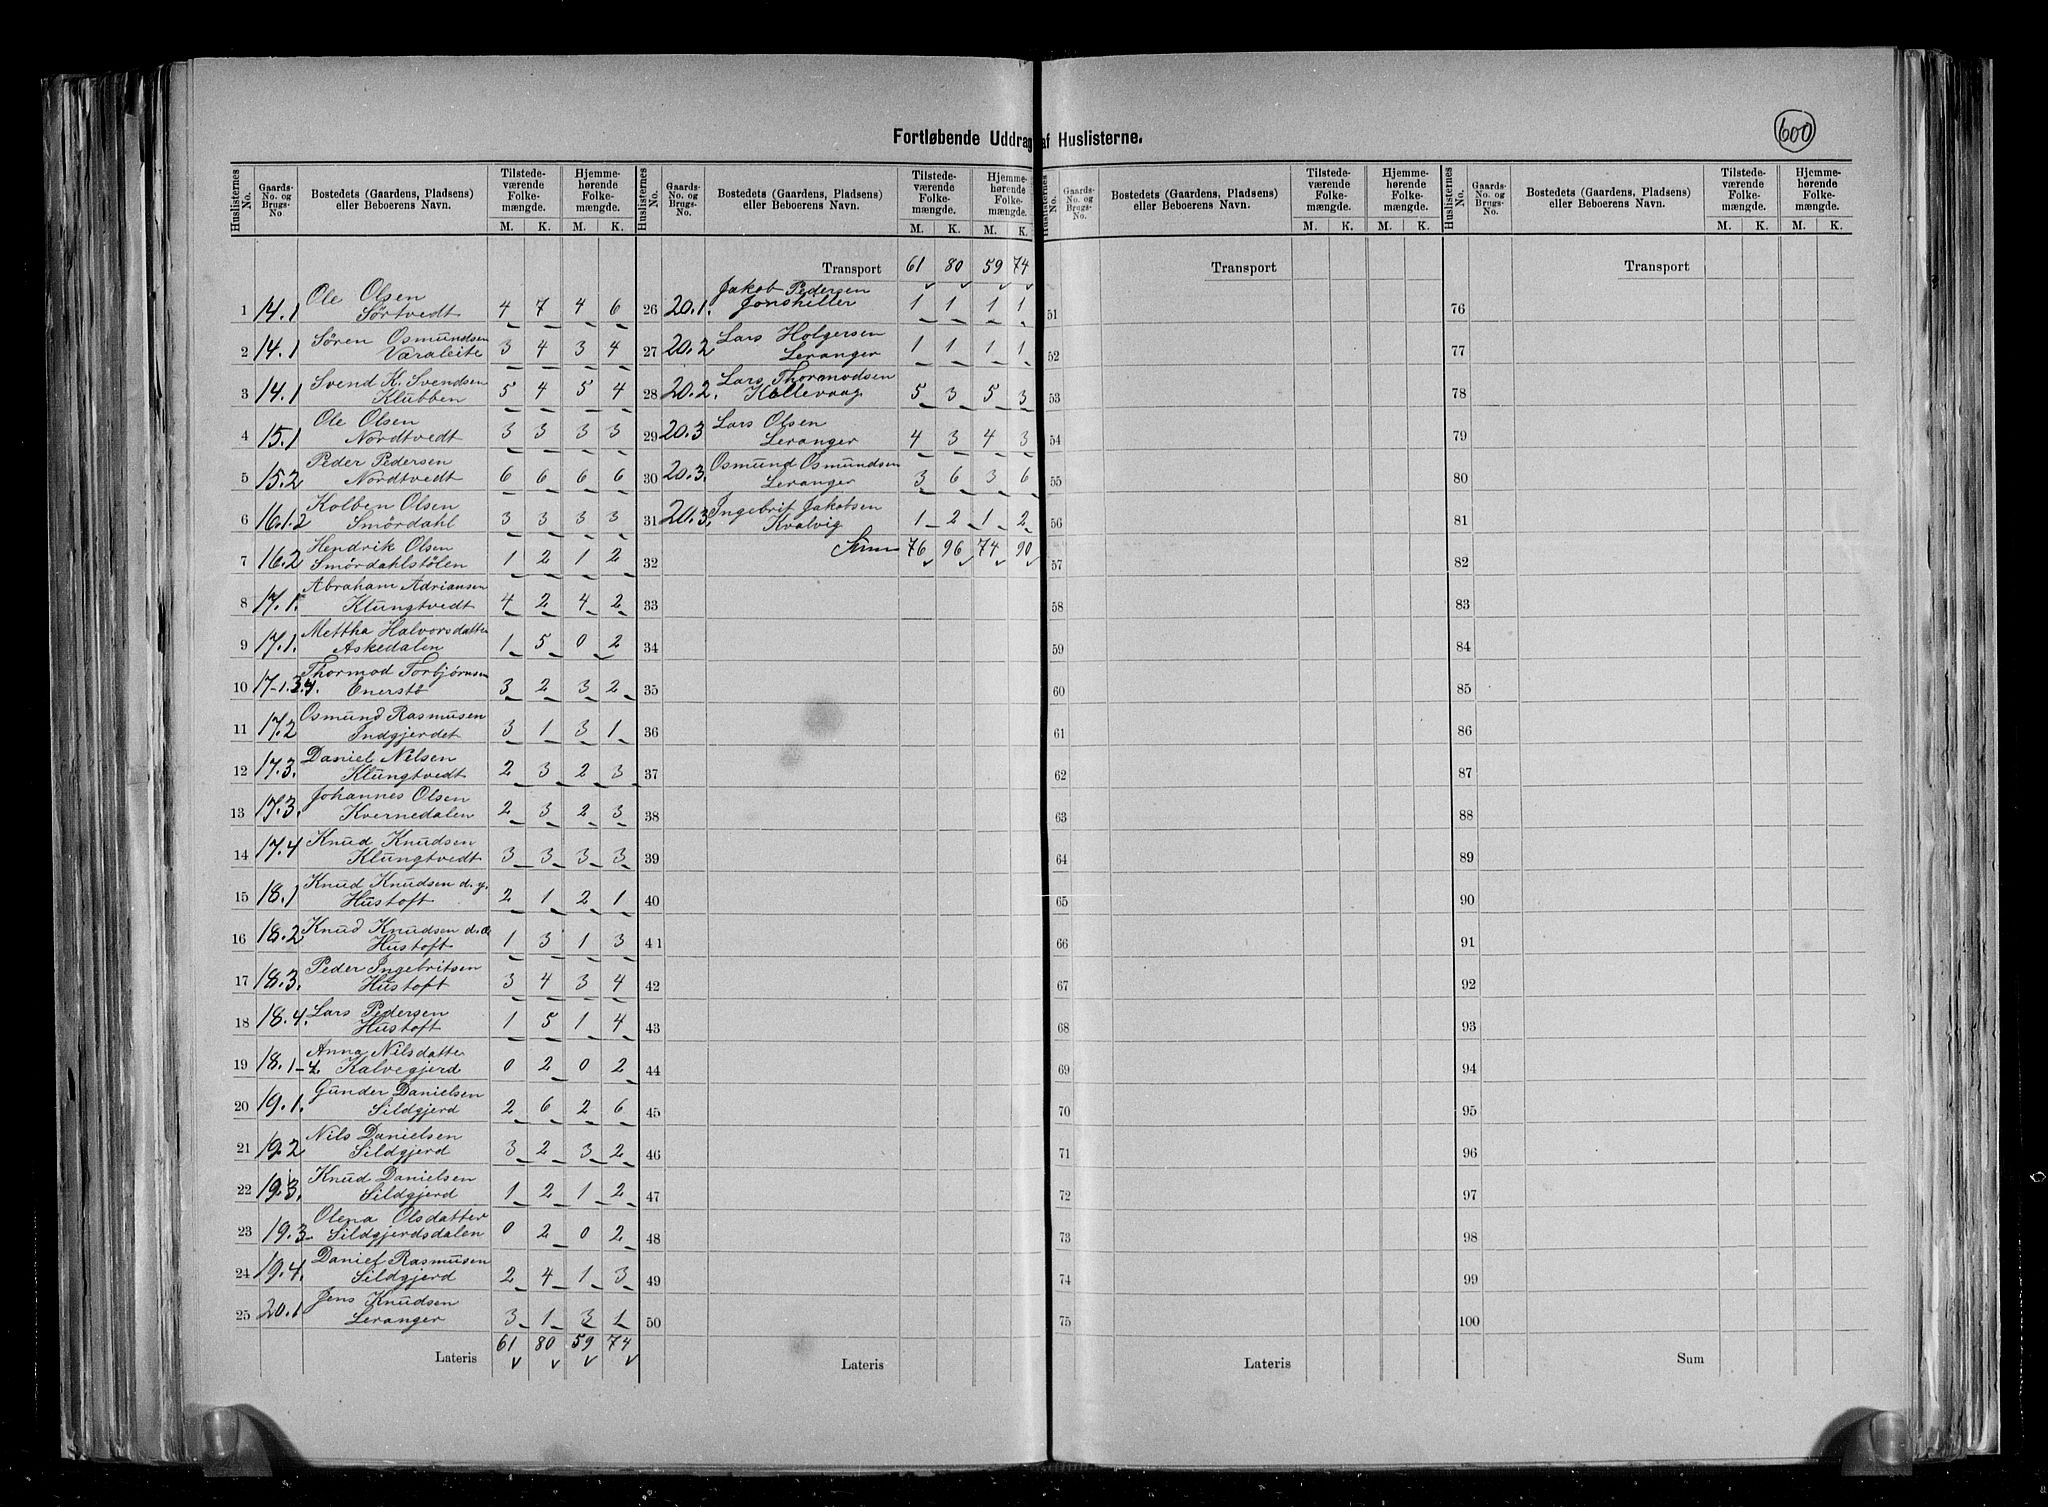 Fortløbende Uddrag af Huslisterne.
600
Huslisternes No. Gaards-No. og Brugs-No Bostedets (Gaardens, Pladsens) eller Beboerens Navn. Tilstede-værende Folke-mængde. Hjemme-hørende Folke-mængde.
M. K. M. K.
1 14.1 Ole Olsen
Sörtvedt 4 7 4 6
2 14.1 Sören Osmundsen
Varaleite 3 4 3 4
3 14.1 Svend K. Svendsen
Klubben 5 4 5 4
4 15.1 Ole Olsen
Nordtvedt 3 3 3 3
5 15.2 Peder Pedersen
Nordtvedt 6 6 6 6
6 16.1.2 Kolben Olsen
Smördahl 3 3 3 3
7 16.2 Hendrik Olsen
Smördahlstölen 1 2 1 2
8 17.1. Abraham Adriansen
Klungtvedt 4 2 4 2
9 17.1. Mettha Halvorsdatter
Askedalen 1 5 0 2
10 17-1.3.4. Thormod Torbjörnsen
Enerstö 3 2 3 2
11 17.2 Osmund Rasmusen
Indgjerdet 3 1 3 1
12 17.3. Daniel Nilsen
Klungtvedt 2 3 2 3
13 17.3. Johannes Olsen
Kvernedalen 2 3 2 3
14 17.4 Knud Knudsen
Klungtvedt 3 3 3 3
15 18.1 Knud Knudsen d.y.
Hustoft 2 1 2 1
16 18.2 Knud Knudsen d.æ
Hustoft 1 3 1 3
17 18.3. Peder Ingebritsen
Hustoft 3 4 3 4
18 18.4. Lars Pedersen
Hustoft 1 5 1 4
19 18.1-4. Anna Nilsdatte
Kalvegjerd 0 2 0 2
20 19.1. Gunder Danielsen
Sildgjerd 2 6 2 6
21 19.2 Nils Danielsen
Sildgjerd 3 2 3 2
22 19.3. Knud Danielsen
Sildgjerd 1 2 1 2
23 19.3 Olena Olsdatter
Sildgjerdsdalen 0 2 0 2
24 19.4. Daniel Rasmusen
Sildgjerd 2 4 1 3
25 20.1 Jens Knudsen
Leranger 3 1 3 1
Lateris 61 80 59 74
Huslisternes No. Gaards-No. og Brugs-No. Bostedets (Gaardens, Pladsens) eller Beboerens Navn. Tilstede-værende Folke-mængde. Hjemme-hørende Folke-mængde.
M. K. M. K.
Transport 61 80 59 74
26 20.1. Jakob Pedersen
Jonshiller 1 1 1 1
27 20.2 Lars Holgersen
Leranger 1 1 1 1
28 20.2. Lars Thormodsen
Kollevaag 5 3 5 3
29 20.3 Lars Olsen
Leranger 4 3 4 3
30 20.3. Osmund Osmundsen
Leranger 3 6 3 6
31 20.3. Ingebrit Jakobsen
Kvalvig 1 2 1 2
32 Sum 76 96 74 90
33
34
35
36
37
38
39
40
41
42
43
44
45
46
47
48
49
50
Lateris
Huslisternes No. Gaards-No. og Brugs-No. Bostedets (Gaardens, Pladsens) eller Beboerens Navn. Tilstede-værende Folke-mængde. Hjemme-hørende Folke-mængde.
M. K. M. K.
Transport
51
52
53
54
55
56
57
58
59
60
61
62
63
64
65
66
67
68
69
70
71
72
73
74
75
Lateris
Huslisternes No. Gaards-No. og Brugs-No. Bostedets (Gaardens, Pladsens) eller Beboerens Navn. Tilstede-værende Folke-mængde. Hjemme-hørende Folke-mængde.
M. K. M. K.
Transport
76
77
78
79
80
81
82
83
84
85
86
87
88
89
90
91
92
93
94
95
96
97
98
99
100
Sum